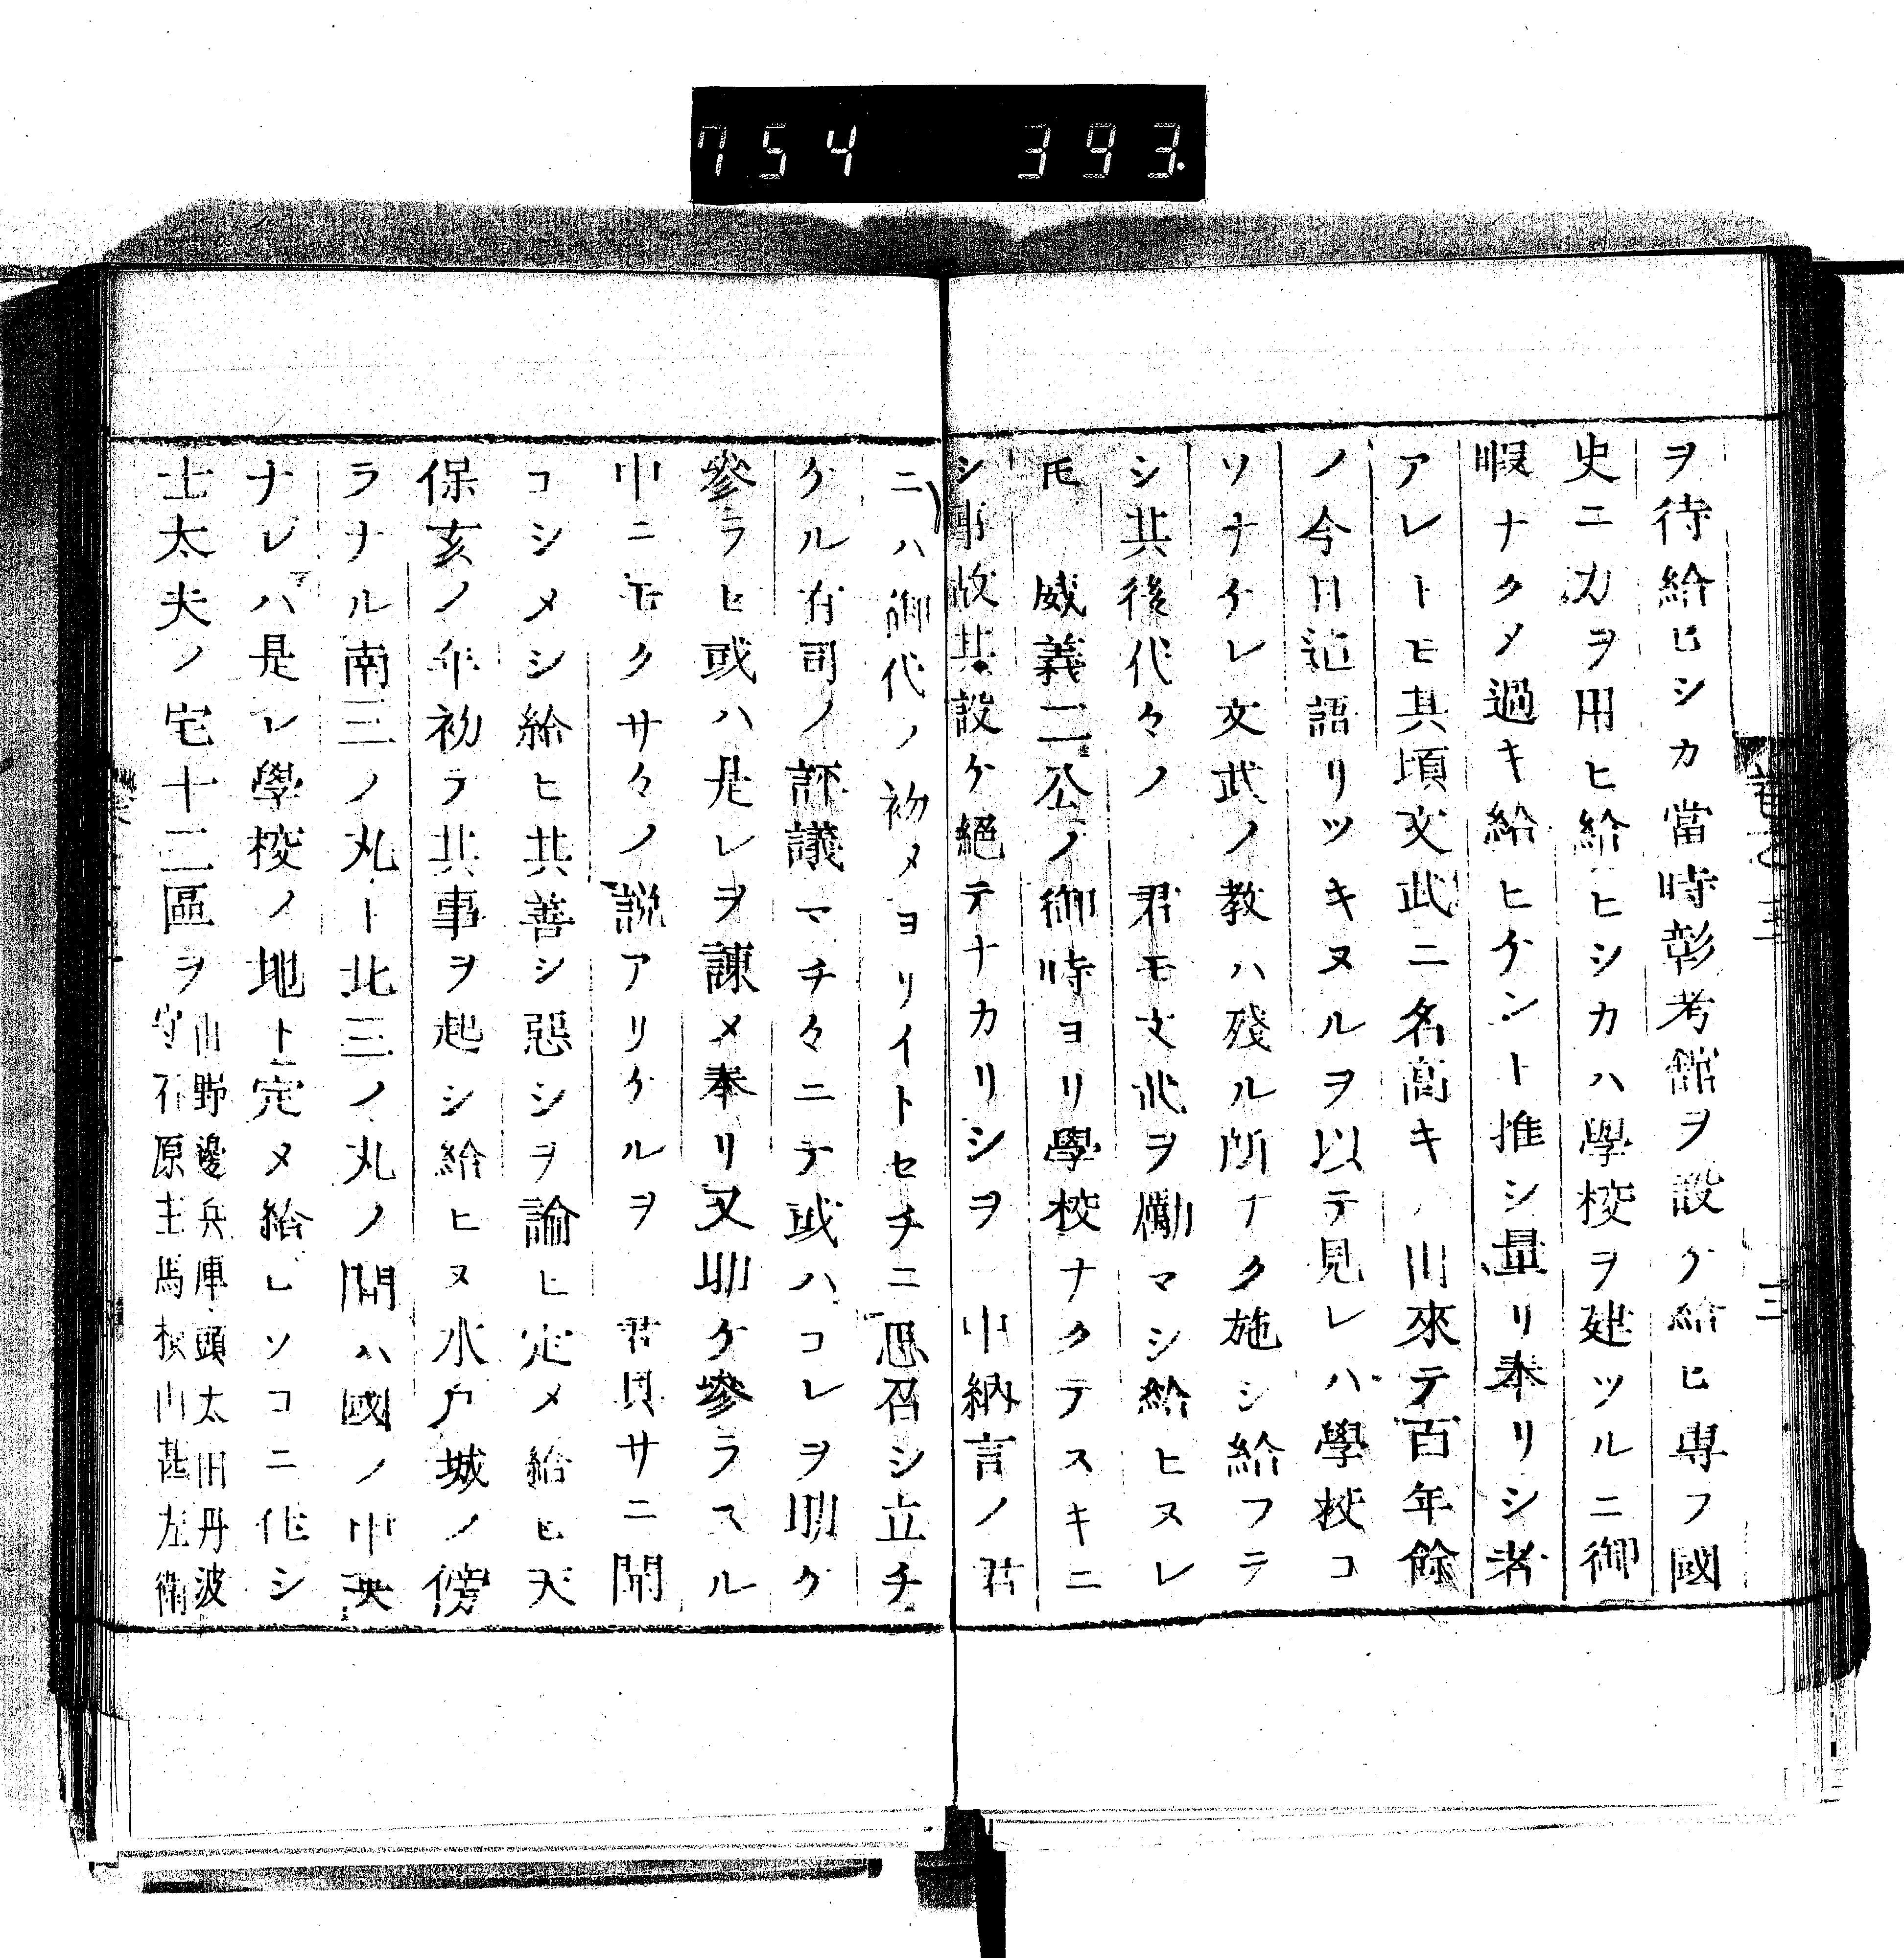 754 393.
ヲ待給ヒシカ當時彰考館ヲ設ケ給ヒ専ラ國
史ニ力ヲ用ヒ給ヒシカハ學校ヲ建ツルニ御
暇ナクメ過キ給ヒケント推シ量リ奉リシ者
アレトヒ其頃文武ニ名高キ 川來テ百年餘
ノ今日迠語リツキヌルヲ以テ見レハ學校コ
ソナケレ文武ノ教ハ殘ル所ナク施シ給フテ
シ其後代々ノ 君モ文武ヲ勵マシ給ヒヌレ
𪜈 威義二公ノ御時ヨリ學校ナクテスキニ
シ事故其設ケ絕テナカリシヲ 中納言ノ君
ニハ御代ノ初メヨリイトセチニ思召シ立チ
ケル有司ノ評議マチ々ニテ或ハコレヲ助ケ
參ラヒ或ハ是レヲ諫メ奉リ又助ケ參ラスル
中ニモクサ々ノ說アリケルヲ 君具サニ聞
コシメシ給ヒ其善シ惡シヲ論ヒ定メ給ヒ天
保亥ノ年初テ其事ヲ起シ給ヒヌ水戶城ノ傍
ラナル南三ノ丸ト北三ノ丸ノ間ハ國ノ中央
ナレハ是レ學校ノ地ト定メ給ヒソコニ住シ
士太夫ノ宅十二區ヲ
山野邊兵庫頭太田丹波
守石原主馬 山甚左衛